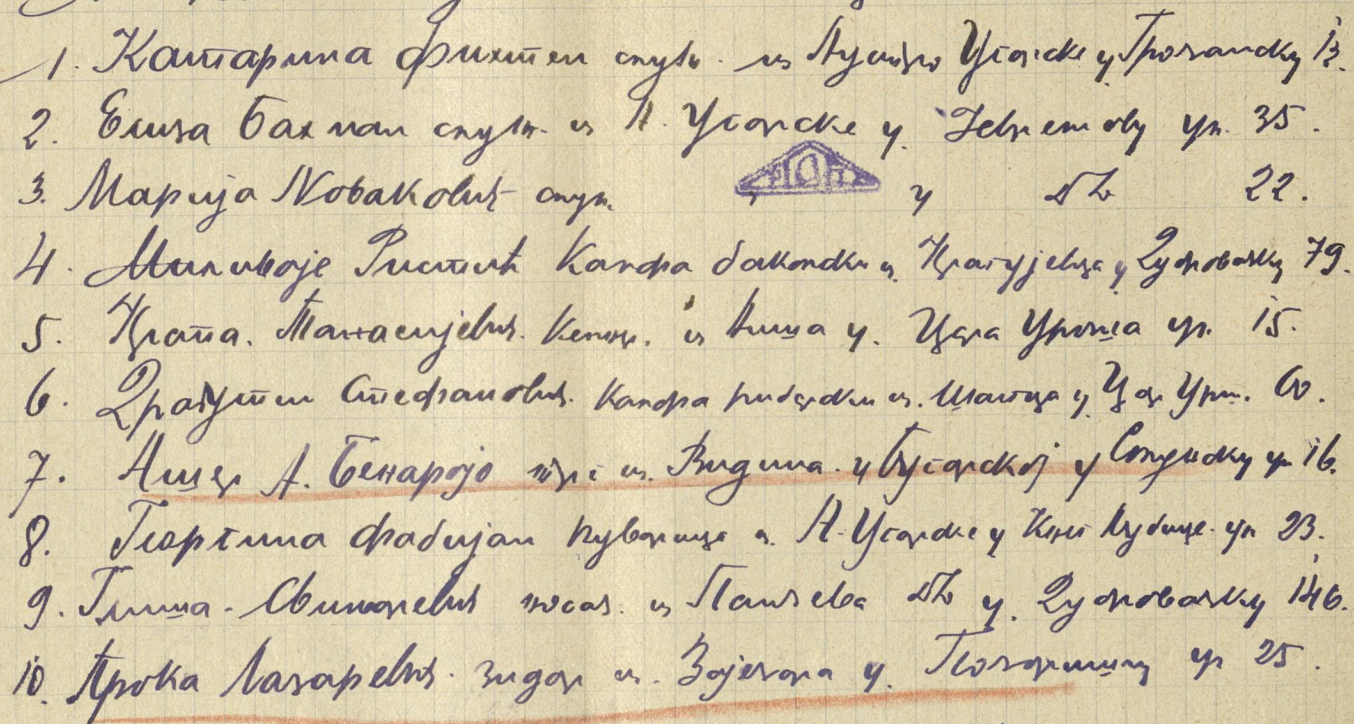 1. Катарина Фихтел служ. из Аустро Угарске у Трогарску 13.
2. Елиза Бахман служ. из А. Угарске у Јевремову ул. 35.
3. Марија Новаковић служ. " у 22.
4. Миливоје Ристић Калфа бакалски из Крагујевца у Дубровачку 79.
5. Крста. Танасијевић. Келнер. из Ниша у. Цара Уроша ул. 15.
6. Драгутин Стефановић. Калфа рибарски из. Шапца у Цар Урош. 60.
7. Ашер А. Бенаројо трг. из. Видина у Бугарској у Солунску ул 16.
8. Георгина Фабијан Куварица из А-Угарске у Књ. Љубице ул 23.
9. Глиша. из Панчева у. Дубровачку 146.
10. Прока Лазаревић. зидар из. Зајечара у. ул 25.